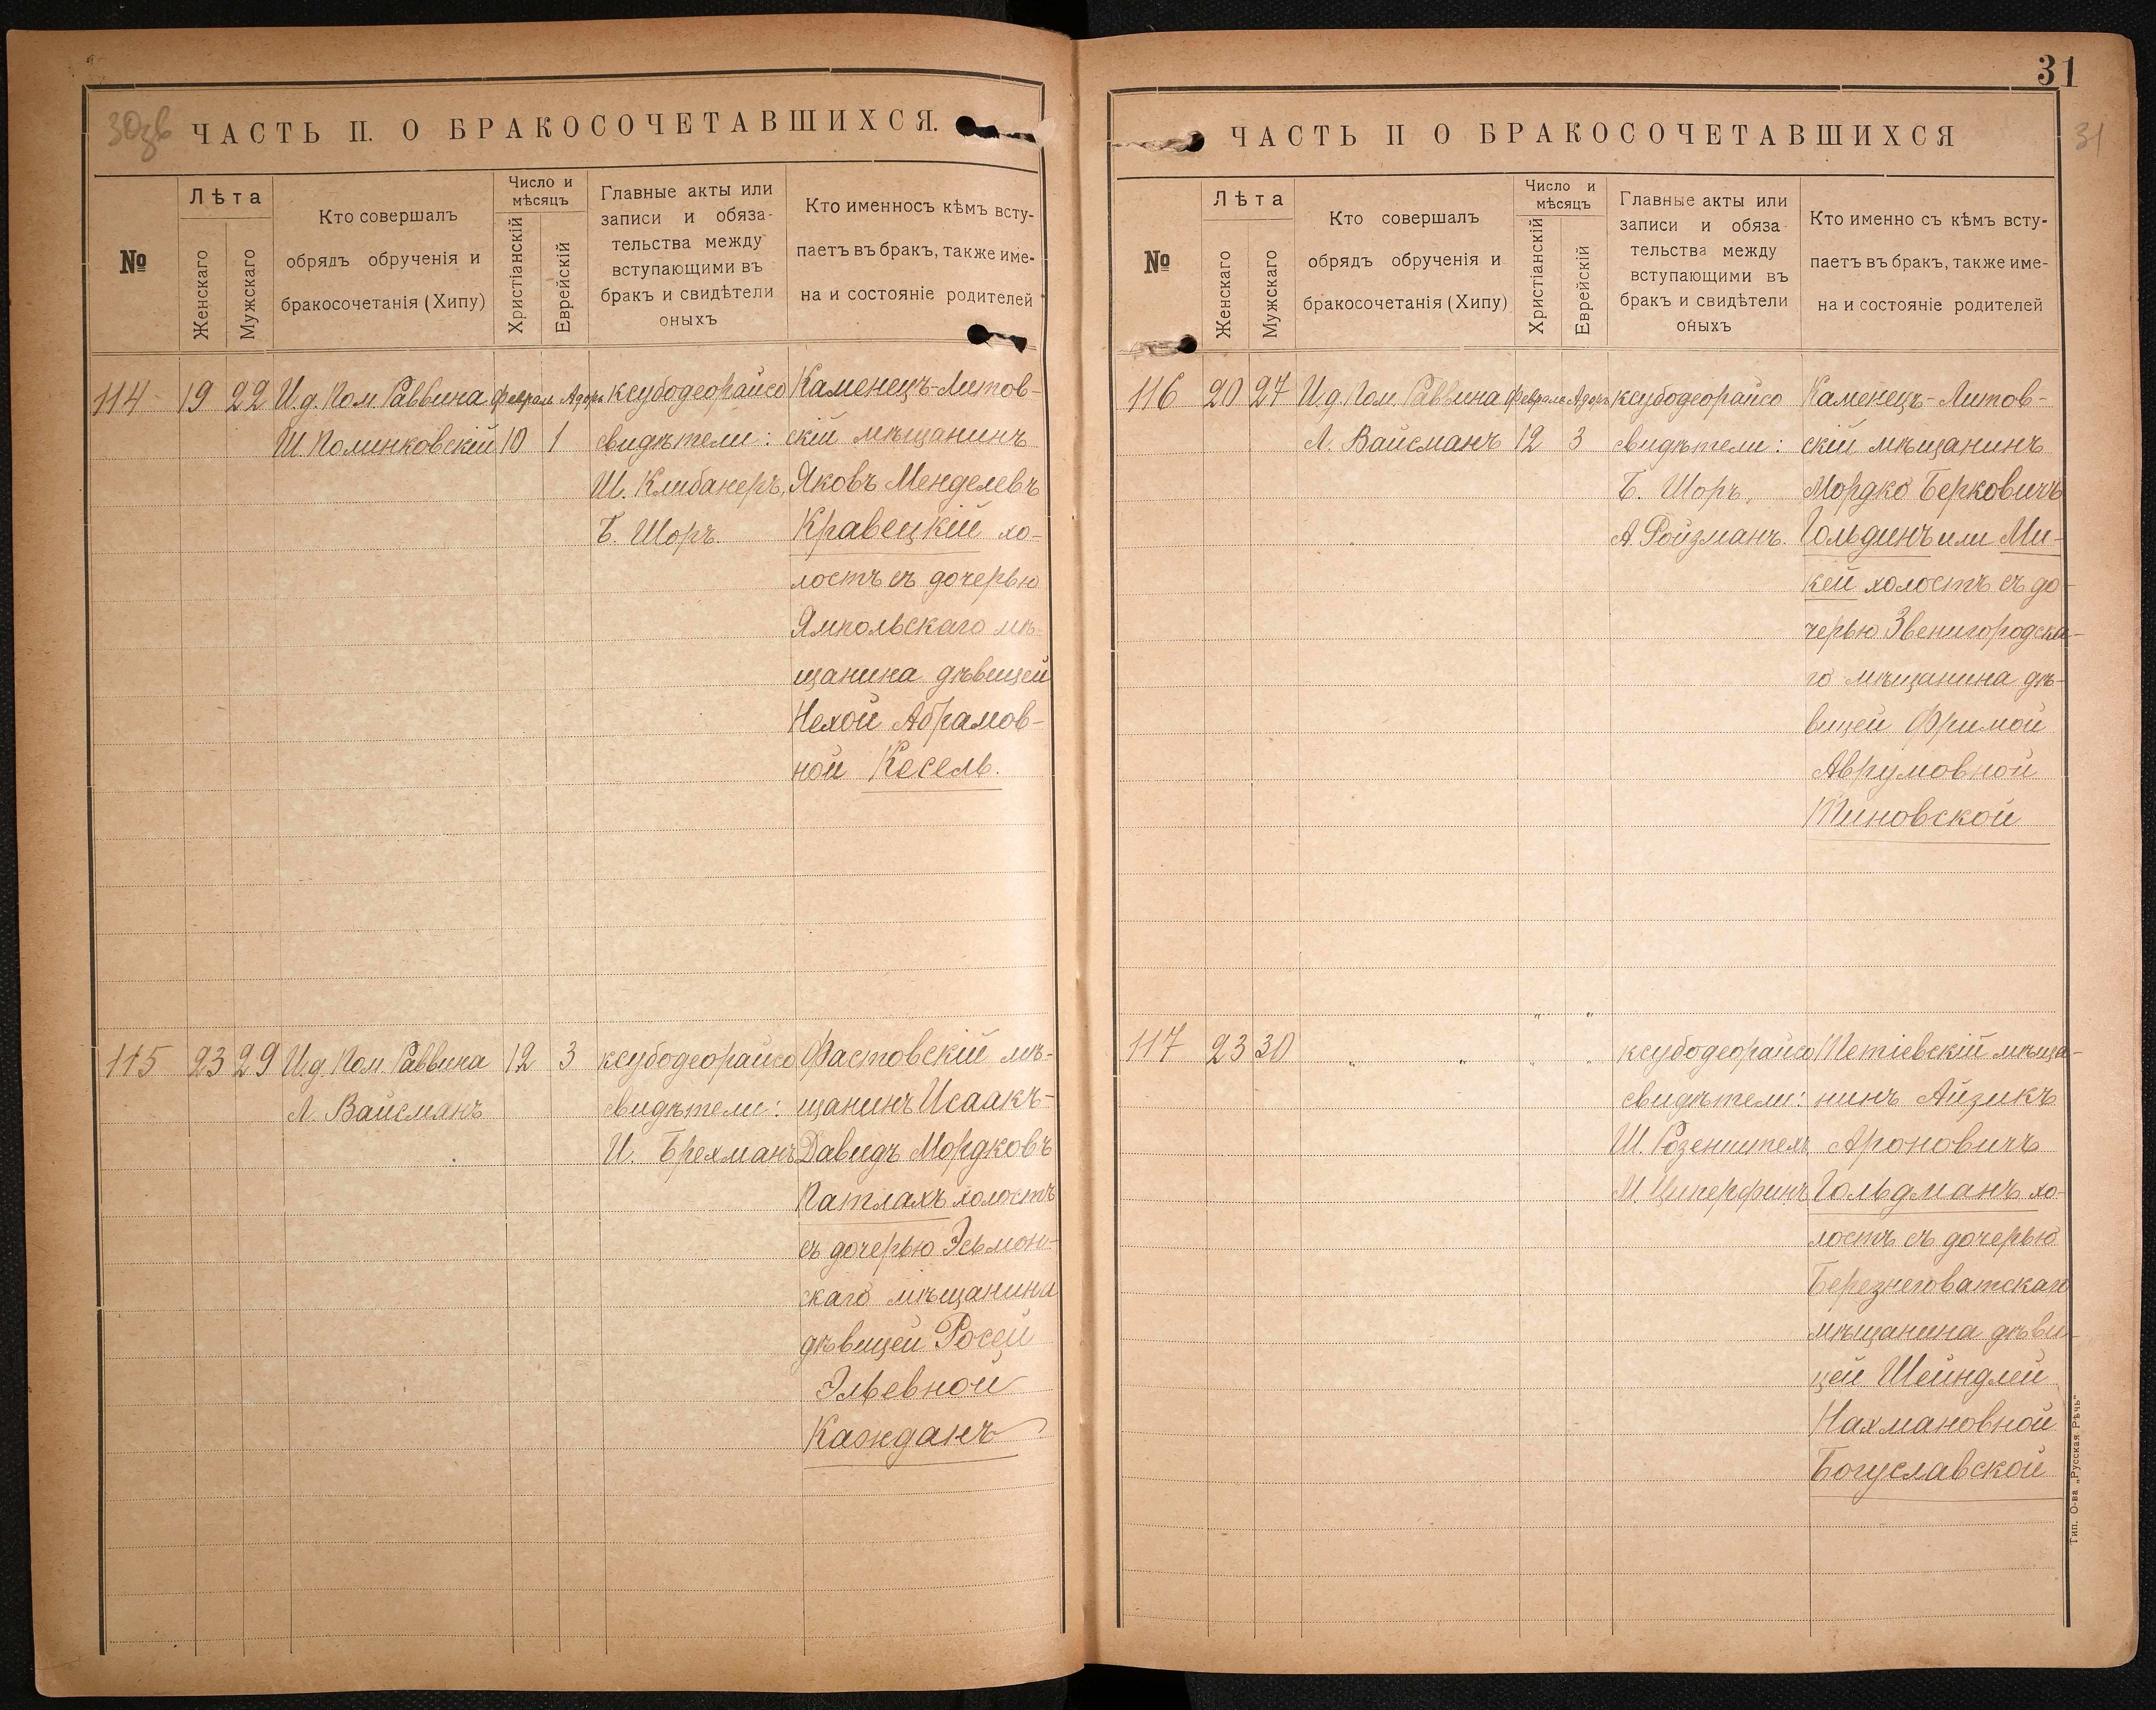 30зв
ЧАСТЬ II. О БРАКОСОЧЕТАВШИХСЯ.
№
Лѣта
Женскаго
Мужскаго
Кто совершалъ
обрядъ обрученія и
бракосочетанія (Хипу)
Число и
мѣсяцъ
Христіанскій
Еврейскій
Главные акты или
записи и обяза-
тельства между
вступающими въ
бракъ и свидѣтели
оныхъ
Кто именносъ кѣмъ всту-
паетъ въ бракъ, также име-
на и состояніе родителей
114
19
22
И.д. Пом. Раввина
Ш. Полинковскій
Февраля
10
Адоръ
1
ксубодеорайсо
свидѣтели:
Ш. Клибанеръ,
Б. Шоръ.
Каменецъ-Литов-
скій мѣщанинъ
Яковъ Менделевъ
Кравецкій хо-
лостъ съ дочерью
Ямпольскаго мѣ-
щанина дѣвицей
Нехой Абрамов-
ной Кесель.
115
23
29
И.д. Пом. Раввина
Л. Вайсманъ
12
3
ксубодеорайсо
свидѣтели:
И. Брехманъ
Фастовскій мѣ-
щанинъ Исаакъ-
Давидъ Мордковъ
Патлахъ холостъ
съ дочерью Эсьмон-
скаго мѣщанина
дѣвицей Росей
Эльевной
Кажданъ
31
31
ЧАСТЬ II О БРАКОСОЧЕТАВШИХСЯ
№
Лѣта
Женскаго
Мужскаго
Кто совершалъ
обрядъ обрученія и
бракосочетанія (Хипу)
Число и
мѣсяцъ
Христіанскій
Еврейскій
Главные акты или
записи и обяза-
тельства между
вступающими въ
бракъ и свидѣтели
оныхъ
Кто именно съ кѣмъ всту-
паетъ въ бракъ, также име-
на и состояніе родителей
116
20
27
И.д. Пом. Раввина
Л. Вайсманъ
Февраля
12
Адоръ
3
ксубодеорайсо
свидѣтели:
Б. Шоръ,
А. Ройзманъ.
Каменецъ-Литов-
скій мѣщанинъ
Мордко Берковичъ
Гольдинъ или Ми-
кей холостъ съ до-
черью Звенигородска-
го мѣщанина дѣ-
вицей Фримой
Аврумовной
Тиновской
117
23
30
„ „ „ „
ксубодеорайсо
свидѣтели:
Ш. Розенштехъ,
М. Циперфинъ
Тетіевскій мѣща-
нинъ Айзикъ
Ароновичъ
Гольдманъ хо-
лостъ съ дочерью
Березнеговатскаго
мѣщанина дѣви-
цей Шейндлей
Нахмановной
Богуславской
Тип. О-ва „Русская Рѣчь"